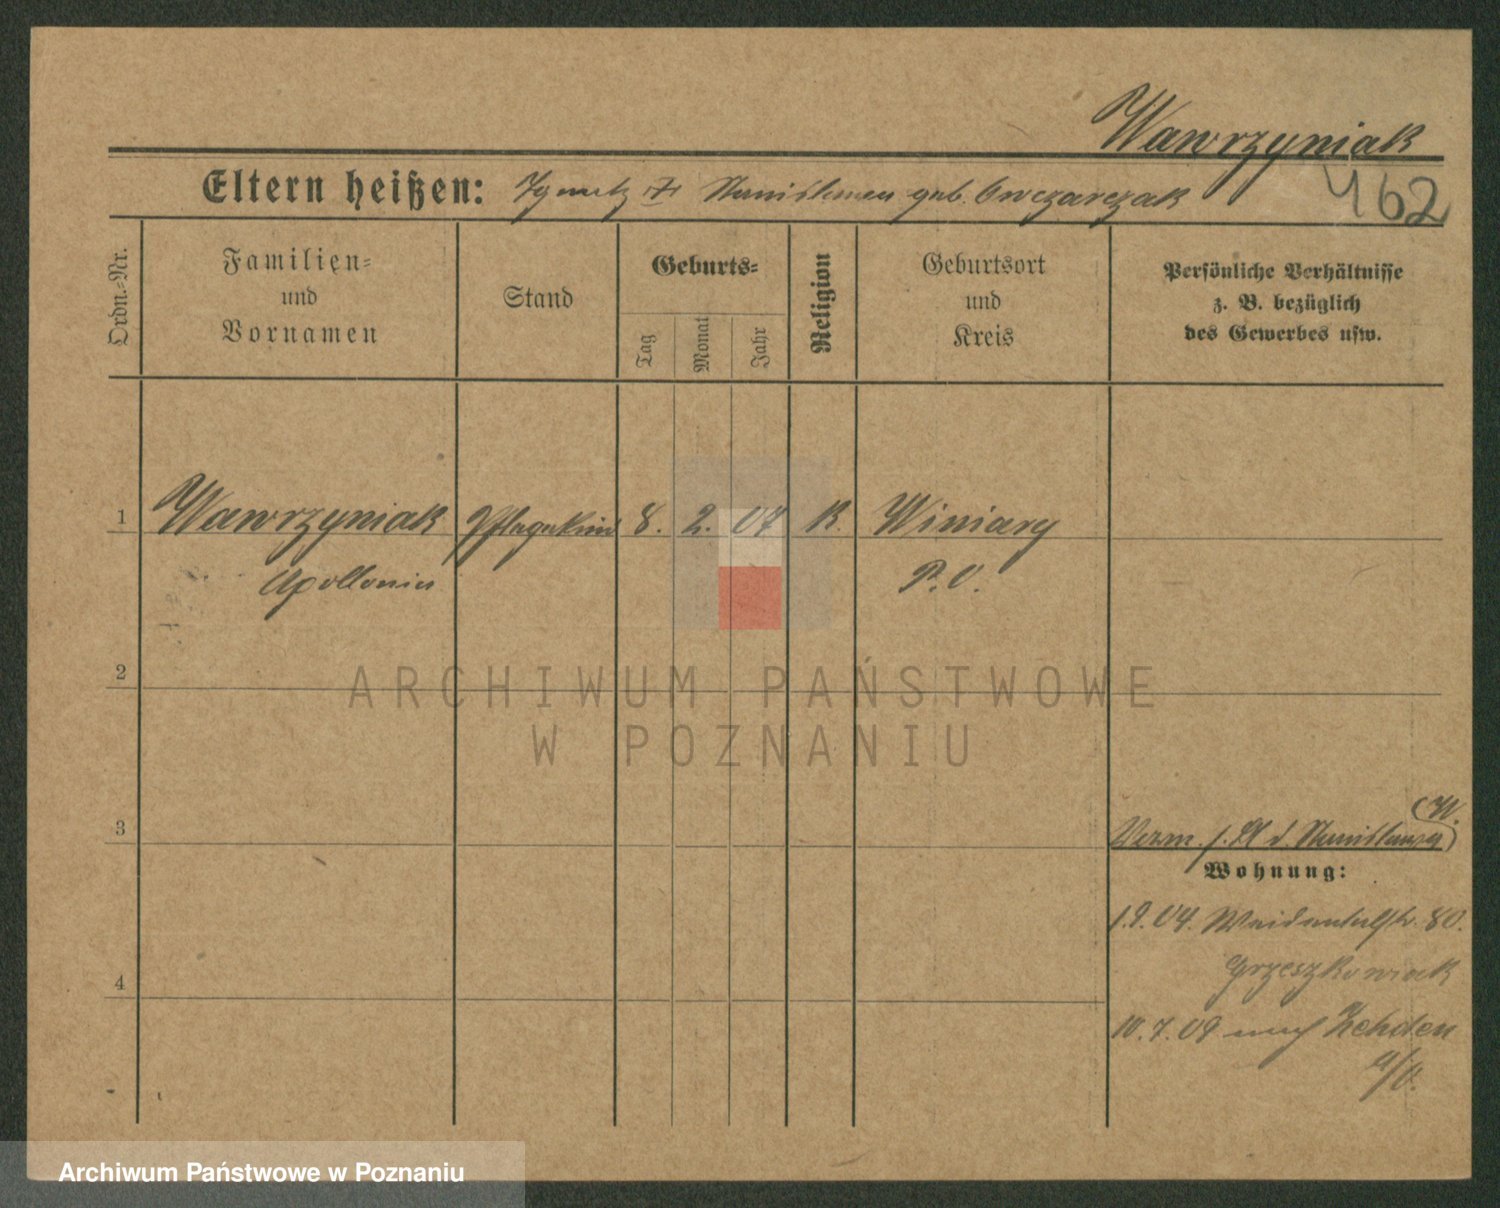 Wawrzyniak
462
Eltern heißen: Ignatz u. Stanislawa geb. Owczarczak
Ordn.-Nr.
Familien-
und
Vornamen
Stand
Geburts-
Tag
Monat
Jahr
Religion
Geburtsort
und
Kreis
Persönliche Verhältnisse
z. B. bezüglich
des Gewerbes usw.
1 Wawrzyniak Pflegekind 8. 2. 07 K. Winiary
Apollonia P. O.
2
ARCHIWUM PAŃSTWOWE
W POZNANIU
3
(W.
Verm. f. Bl d. Stanislawa)
Wohnung:
1.9.04. 80.
Grzeszkowiak
4
10.7.09 nach Zehden
a/O.
Archiwum Państwowe w Poznaniu